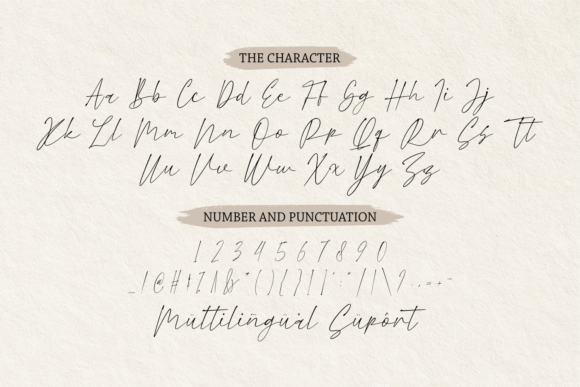 THE CHARACTER
Aa Bb Cc Dd Ee Ff Gg Hh Ii Jj
Kk Ll Mm Nn Oo Pp Qq Rr Ss Tt
Uu Vv Ww Xx Yy Zz
NUMBER AND PUNCTUATION
1 2 3 4 5 6 7 8 9 0
_ ! @ # $ % ^ & * ( ) { } [ ] " : " / | \ ? . , = + -
Mültilingüàl Süpôrt